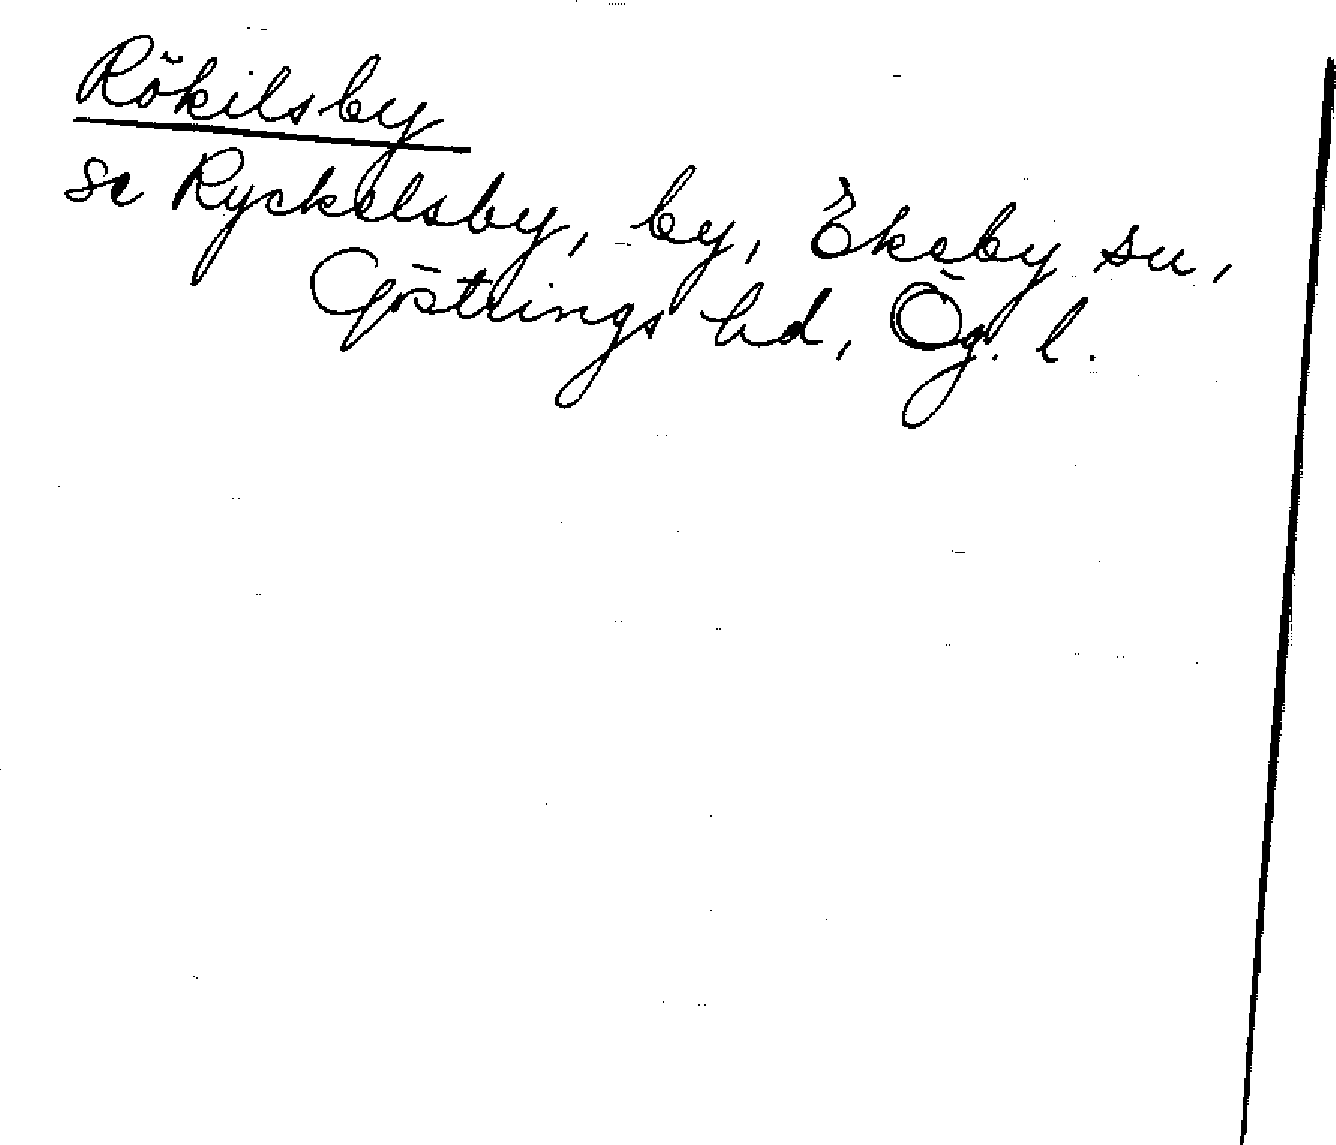 Rökilsby
se Ryckelsby, by, Ekeby sn,
Göstrings hd, Ög. l.